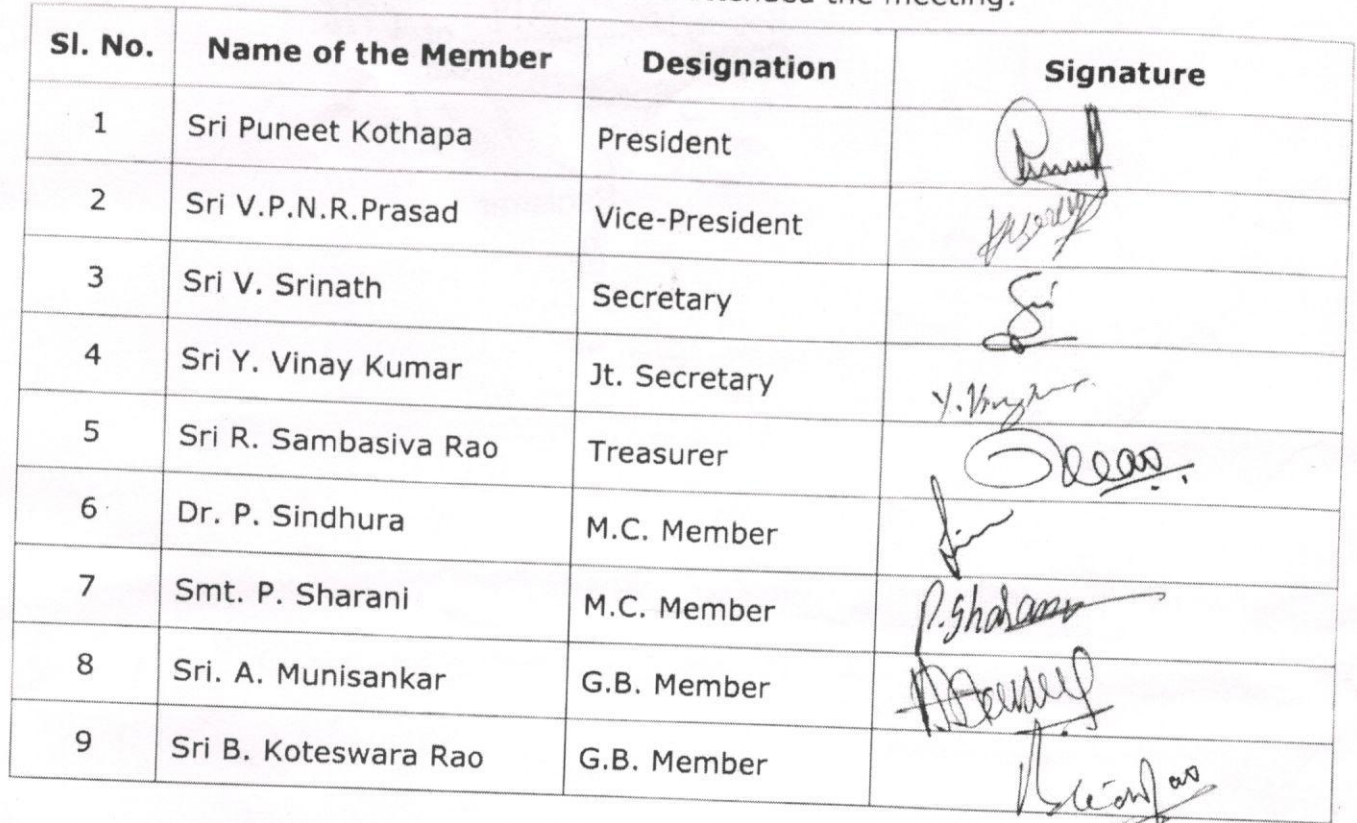 the meeting.
Sl. No. Name of the Member Designation Signature
1 Sri Puneet Kothapa President
2 Sri V.P.N.R.Prasad Vice-President
3 Sri V. Srinath Secretary
4 Sri Y. Vinay Kumar Jt. Secretary
5 Sri R. Sambasiva Rao Treasurer
6 Dr. P. Sindhura M.C. Member
7 Smt. P. Sharani M.C. Member P. Sharani
8 Sri. A. Munisankar G.B. Member
9 Sri B. Koteswara Rao G.B. Member